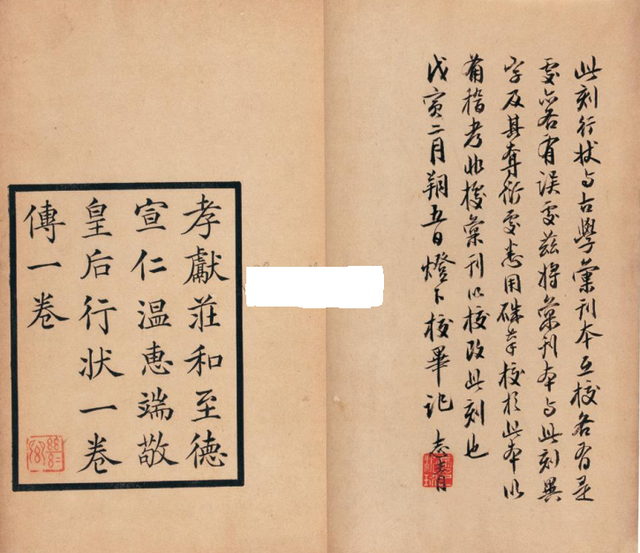 此刻行狀与古學彙刊本互校各有是
處亦各有誤處茲將彙刊本与此刻異
字及其奪衍處悉用硃筆校於此本以
備稽考非據彙刊以校改此刻也
戊寅二月朔五日燈下校畢記
孝獻莊和至德
宣仁温惠端敬
皇后行狀一卷
傳一卷